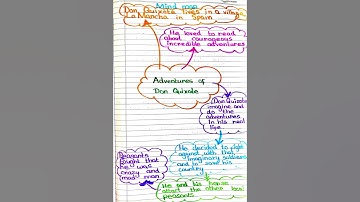 Mind map
Don Quixote lives in a village
La Mancha in Spain
He loved to read
about courageous
incredible adventures
Adventures of
Don Quixote
Don Quixote
imagine and
do the
adventures
in his real
life
He decided to fight
against with that
imaginary soldiers
and to save
country
He and his horse
attact the other local
peasants
Peasants
thought that
he was
crazy and
mad man